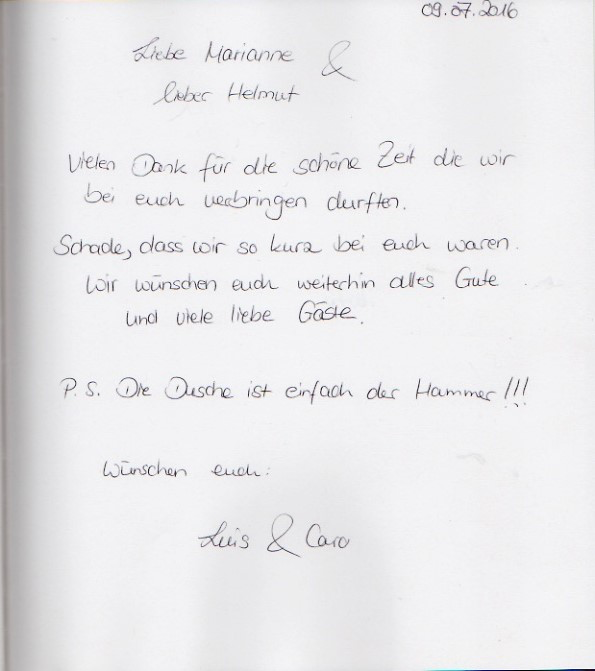 09.07.2016
Liebe Marianne &
lieber Helmut
Vielen Dank für die schöne Zeit die wir
bei euch verbringen durften.
Schade, dass wir so kurz bei euch waren.
Wir wünschen euch weiterhin alles Gute
und viele liebe Gäste.
P.S. Die Dusche ist einfach der Hammer!!!
Wünschen euch:
Luis & Caro